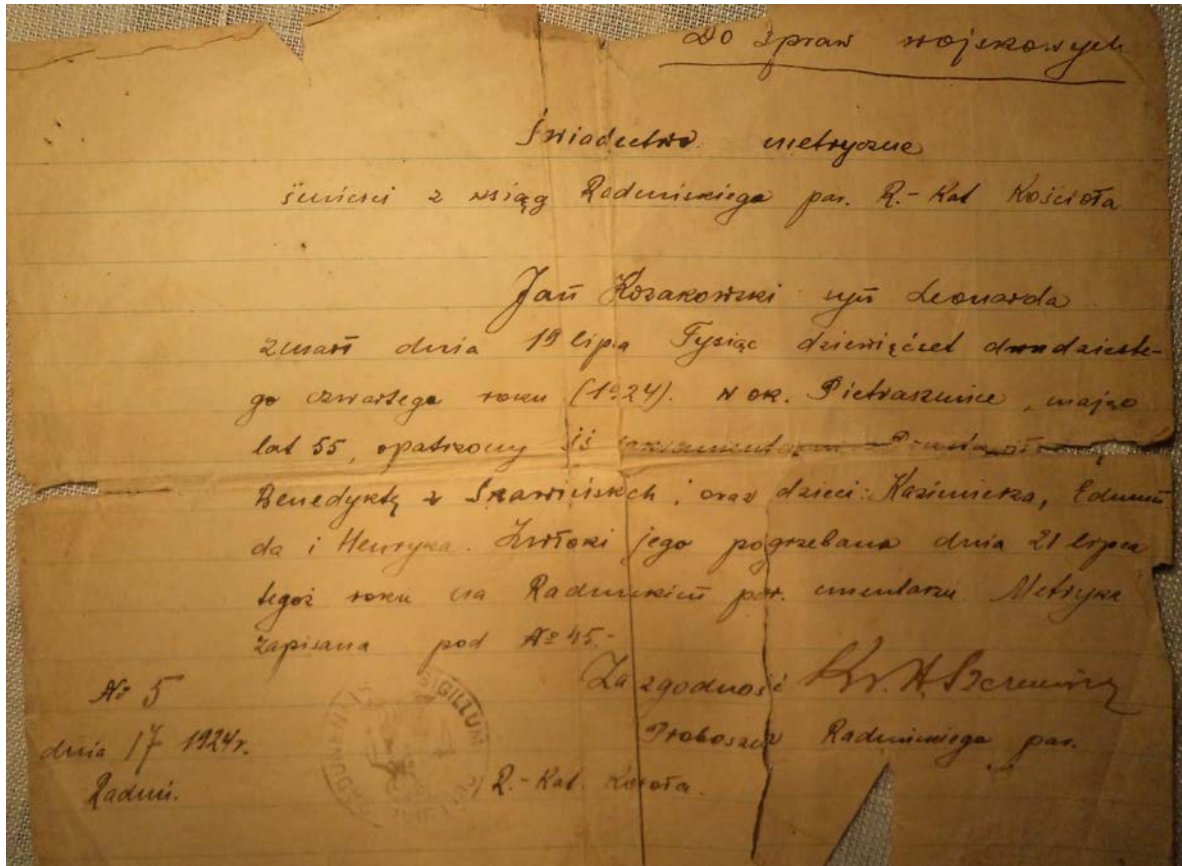 Do spraw wojskowych
Świadectwo metryczne
śmierci z ksiąg Raduńskiego par. R.-Kat Kościoła
Jań Kozakowski syń Leonarda
zmarł dnia 19 lipca Tysiąc dziewięćset dwudzieste-
go czwartego roku (1924). w ok. Pietraszuńce, mając
lat 55, opatrzony
Benedyktę z oraz dzieci: Kazimierza, Edmun
da i Henryka. Zwłoki jego pogrzebano dnia 21 lipca
tegoż roku na Raduńskim par. cmentarzu Metryka
zapisana pod № 45.-
Za zgodność Ks.
№ 5
dnia 17 1924r.
Proboszcz Raduńskiego par.
Raduń.
R.-Kat. Kościoła.
SIGILLUM